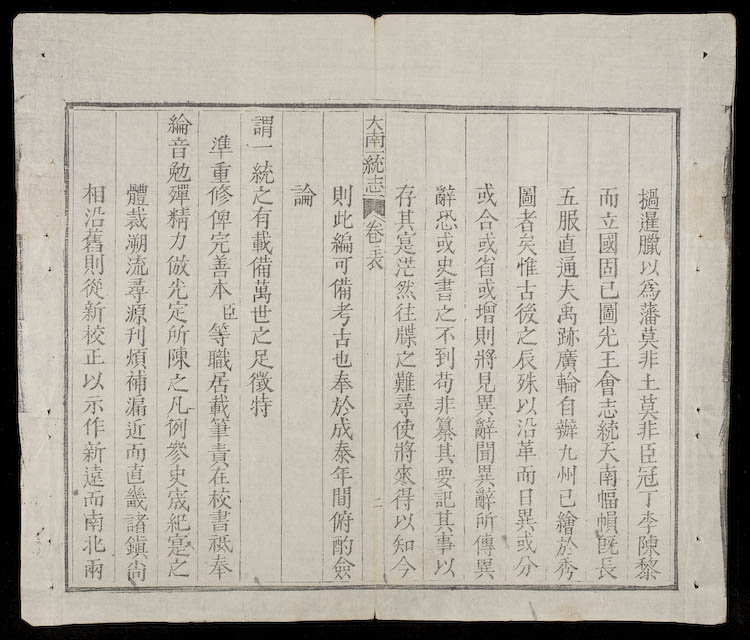 撾暹臘以爲藩莫非土莫非臣冠丁李陳黎
而立國固已圖光王會志統天南幅幀旣長
五服直通夫禹跡廣輪自辦九州已繪於秀
圖者矣惟古後之辰殊以沿革而日異或分
或合或省或增則將見異辭聞異辭所傳異
辭恐或史書之不到茍非纂其要記其事以
存其寔茫然往牒之難尋使將來得以知今
大南一統志
卷之表
二
則此編可備考古也奉於成泰年間俯酌僉
論
謂一統之有載備萬世之足徵特
準重修俾完善本臣等職居載筆責在校書祗奉
綸音勉殫精力倣先定所陳之凡例參史宬紀寔之
體裁溯流尋源刊煩補漏近而直畿諸鎭尙
相沿舊則從新校正以示作新遠而南北兩